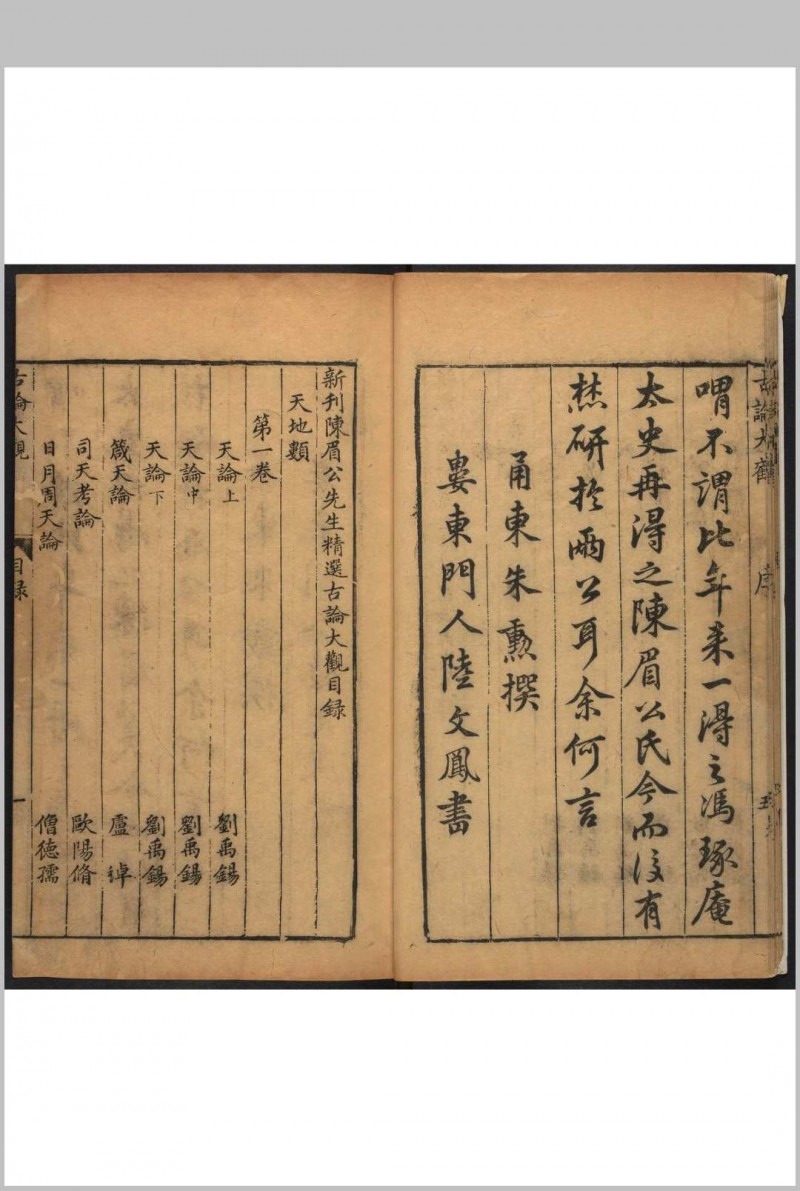 古論大觀
序
喟不謂比年來一得之馮琢庵
太史再得之陳眉公氏今而後有
研於兩公耳余何言
甬東朱勳撰
婁東門人陸文鳳書
新刊陳眉公先生精選古論大觀目錄
天地類
第一卷
天論上 劉禹錫
天論中 劉禹錫
天論下 劉禹錫
箴天論 盧淖
司天考論 歐陽脩
日月周天論 僧德孺
古論大觀
目錄
一